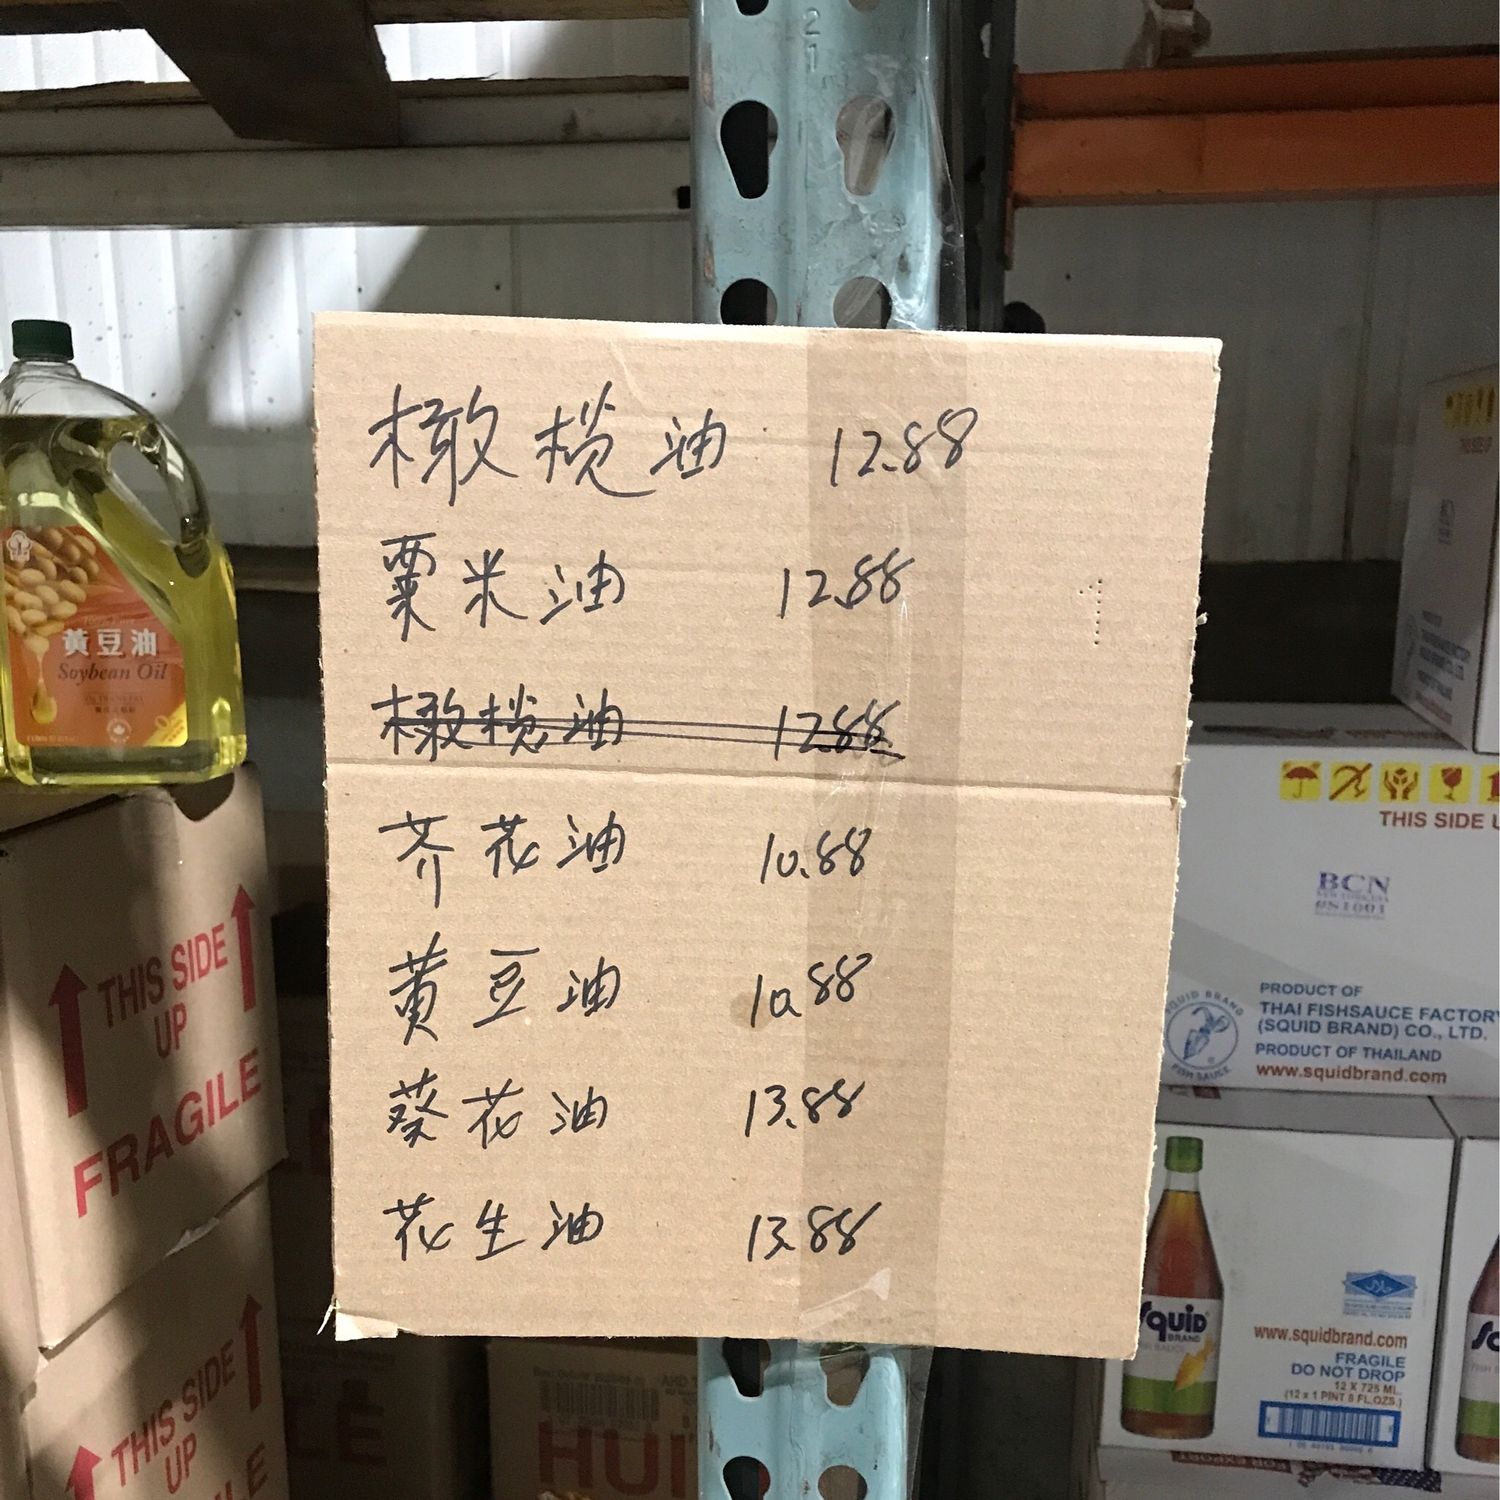 21
橄榄油 12.88
粟米油 12.88
橄榄油 12.88
芥花油 10.88
黄豆油 10.88
葵花油 13.88
花生油 13.88
黃豆油
Soybean Oil
THIS SIDE
UP
FRAGILE
THIS SIDE
UP
HUI
THIS SIDE U
BCN
SQUID BRAND
FISH SAUCE
PRODUCT OF
THAI FISHSAUCE FACTORY
(SQUID BRAND) CO., LTD.
PRODUCT OF THAILAND
www.squidbrand.com
SQUID
BRAND
FISH SAUCE
www.squidbrand.com
FRAGILE
DO NOT DROP
12 X 725 ML.
(12 x 1 PINT 8 FL.OZS.)
FOR EXPORT